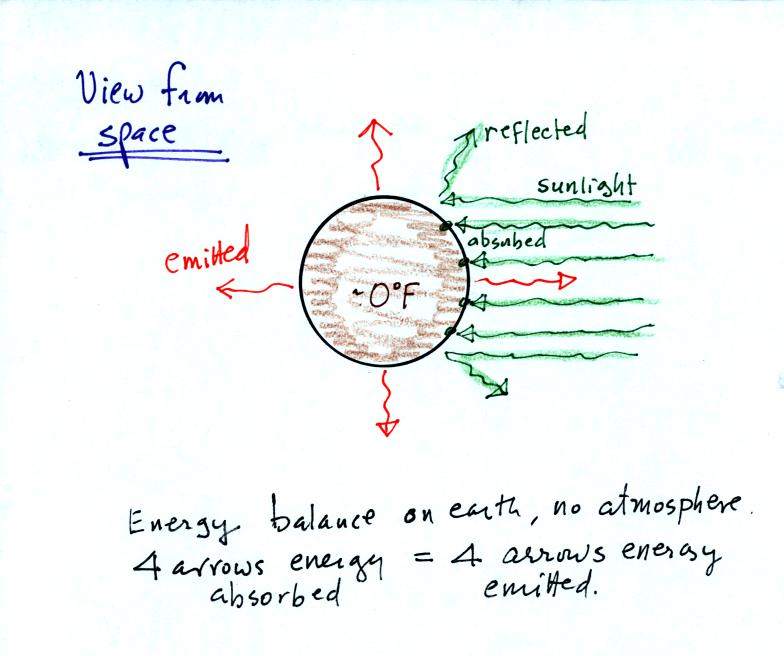 View from
space
reflected
sunlight
absorbed
emitted
~0°F
Energy balance on earth, no atmosphere.
4 arrows energy = 4 arrows energy
absorbed emitted.